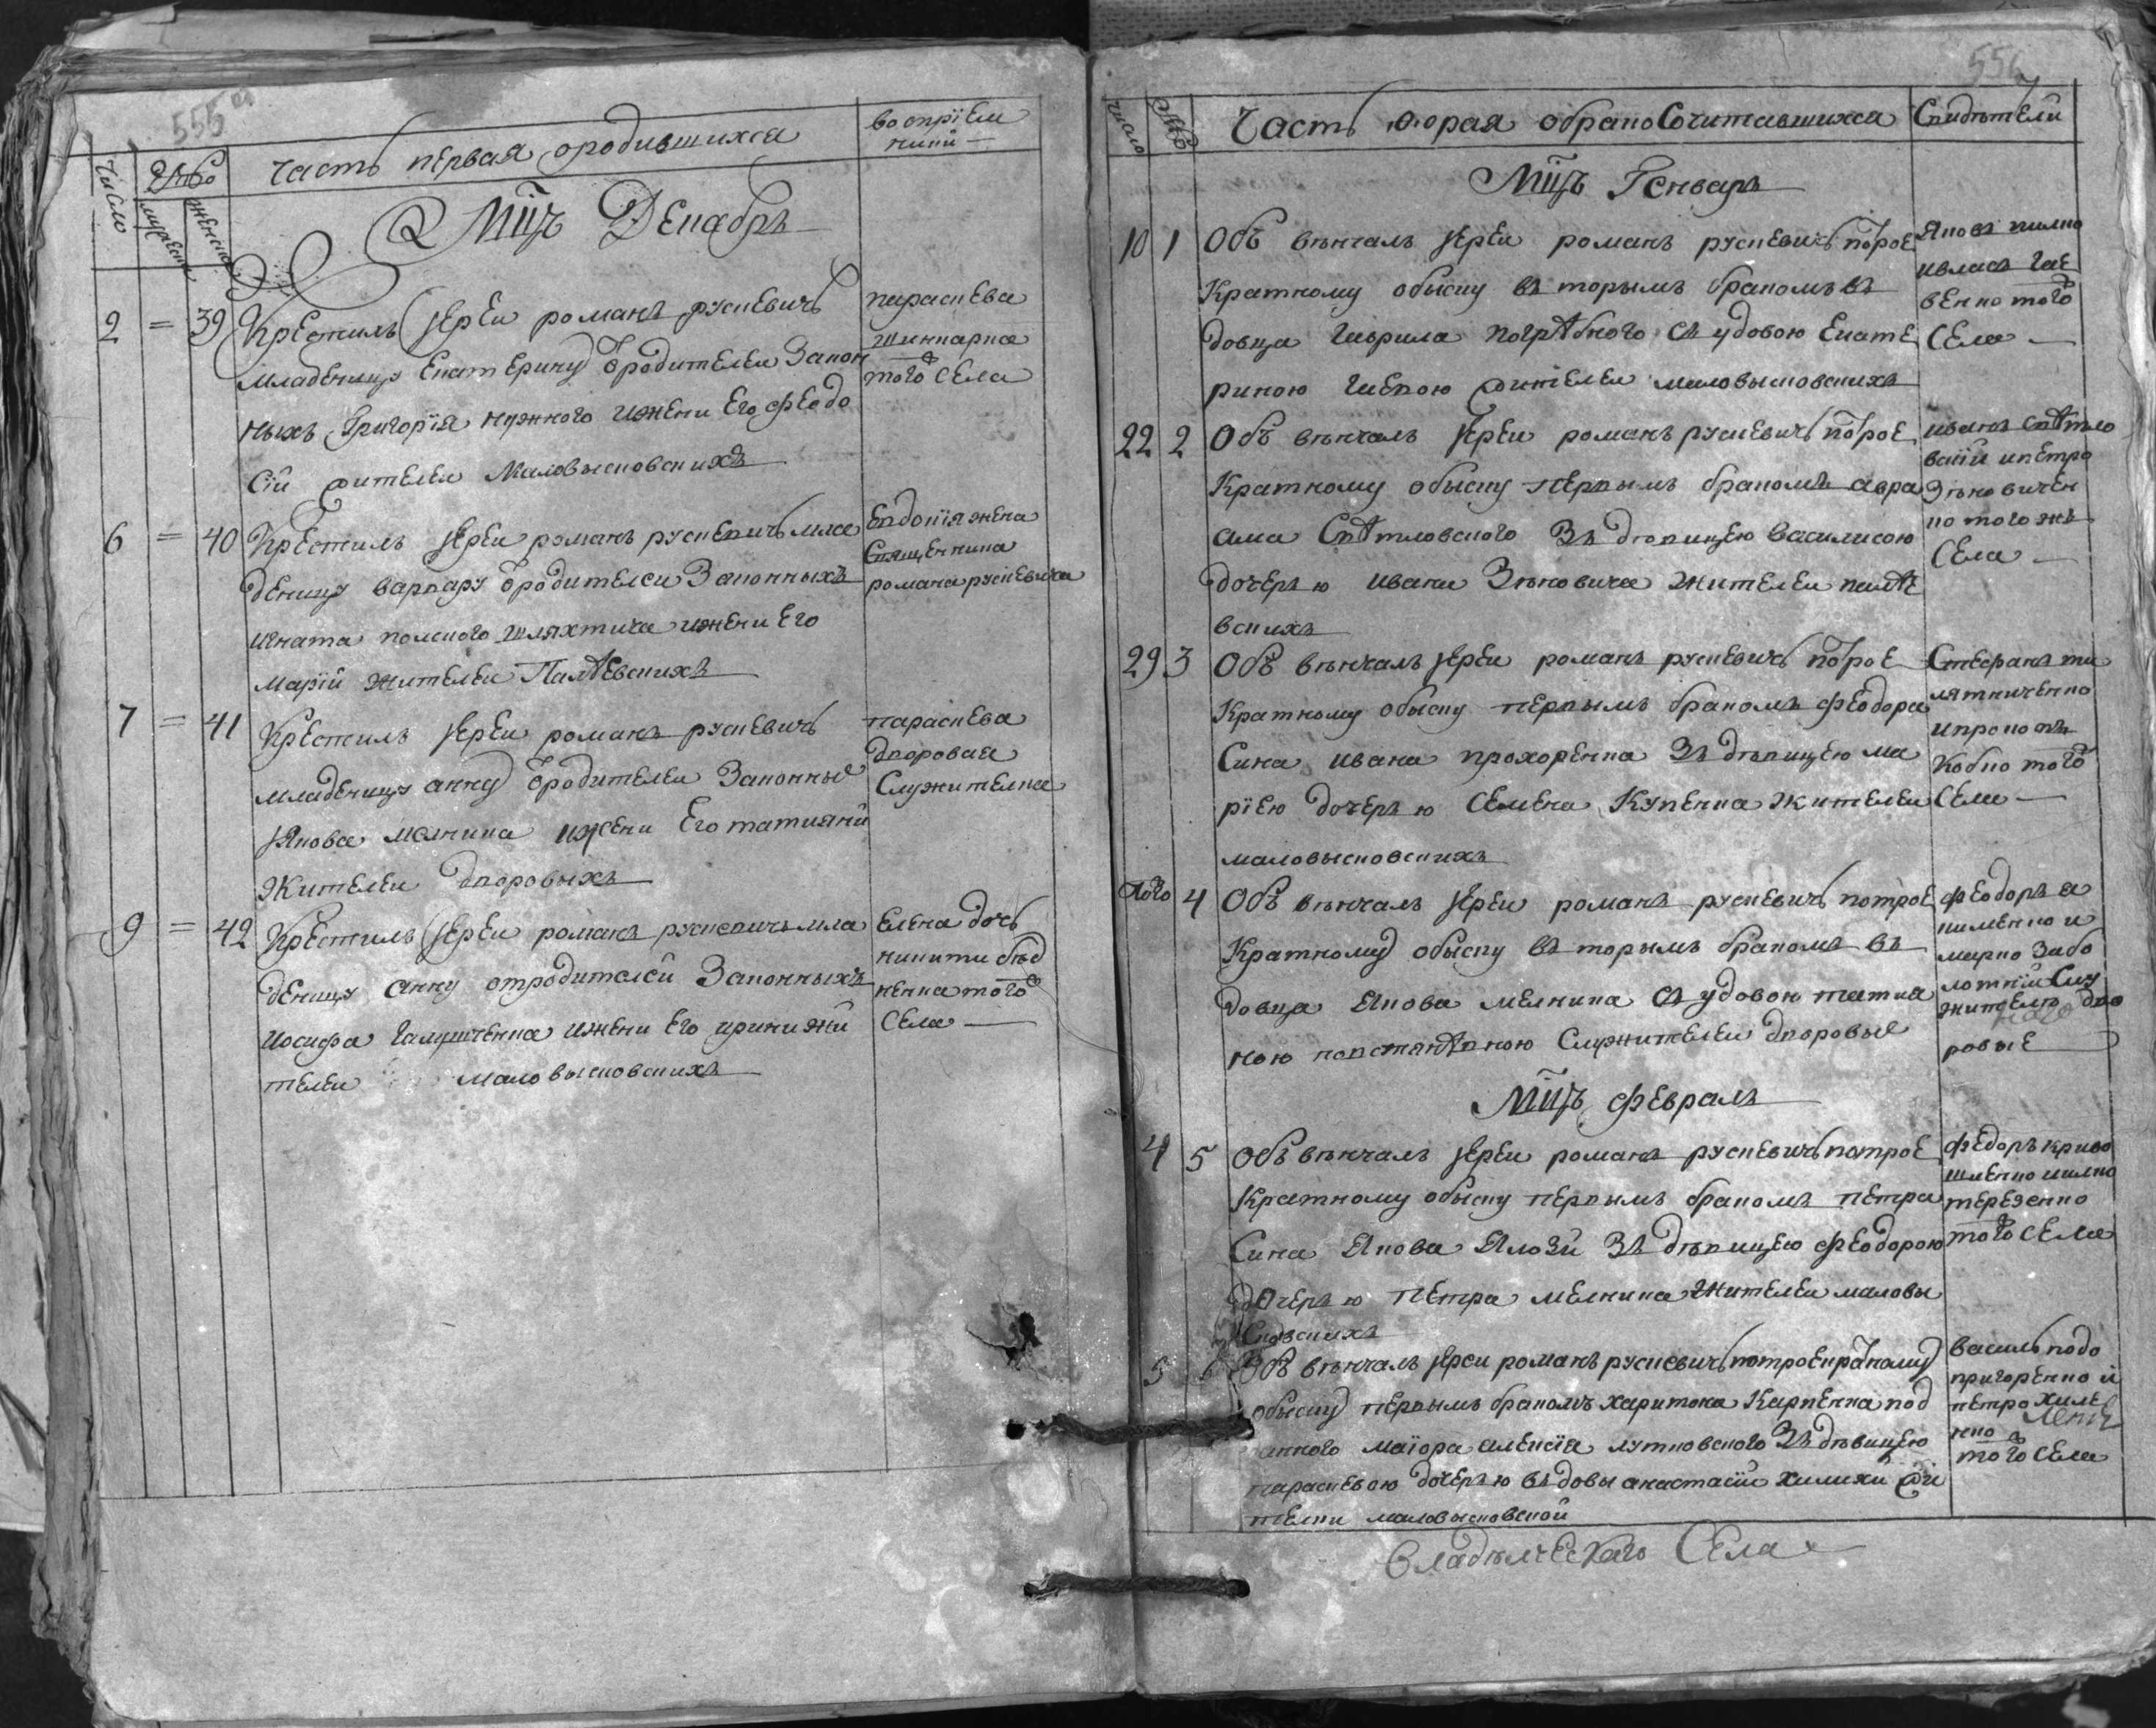 555 об
Число
Число
мужеска
женска
Часть первая ородившихся
Воспрїем
ники
Мцъ Декабръ
2 = 39 Крестилъ їереи романъ рускевичъ
младеницу Екатерину ѿродителеи Закон
ныхъ Григорїя нужного ижени Его Феодо
сїи жителеи Маловысковскихъ
параскева
шинкарка
того Села
6 = 40 Крестилъ їереи романъ рускевичъ мла
деницу варвару ѿродителеи Законныхъ
игната полского шляхтича ижени Его
Марїи жителеи Палѣевскихъ
Евдокїя жена
Священника
романа рускевича
7 = 41 Крестилъ їереи романъ рускевичъ
младеницу анну ѿродителеи Законные
Якова мелника ижени Его татияни
Жителеи дворовыхъ
параскева
дворовая
Служителка
9 = 42 Крестилъ їереи романъ рускевичъ мла
деницу анну отродителеи Законныхъ
иосифа Галушченка ижени Его ирини жи
телеи маловысковскихъ
Елена дочъ
никити бѣд
ненка того
Села
556
Число
Часть вторая обракоСочитавшихся
Свидѣтели
Мцъ Генваръ
10 1 Объ вѣнчалъ їереи романъ рускевичъ потрое
Кратному обыску въ торымъ бракомъ въ
довца Гаврила погрѣбного съ удовою Екате
риною Гаевою жителеи маловысковскихъ
Яковъ
ивласъ Гае
венко того
Села
22 2 Объ вѣнчалъ їереи романъ рускевичъ потрое
Кратному обыску первымъ бракомъ авра
ама Свѣтловского Зъ дѣвицею василисою
дочерю ивана Зѣновича жителеи палѣе
вскихъ
иванъ Свѣтло
вскїй ипетро
Зѣновичен
ко того жъ
Села
29 3 Объ вѣнчалъ їереи романъ рускевичъ потрое
Кратному обыску первымъ бракомъ Феодора
Сина ивана прохоренка Зъ дѣвицею ма
рїею дочерю Семена Купенка жителеи
маловысковскихъ
Стефанъ ти
лятниченко
ипрокопъ
Кобко того
Села
Того 4 Объ вѣнчалъ їереи романъ рускевичъ потрое
Кратному обыску въ торымъ бракомъ въ
довца Якова мелника съ удовою татия
ною Служителеи дворовые
Феодоръ а
кименко и
марко Забо
лотнїй Слу
жителѣ дво
ровые
Мцъ Февралъ
4 5 Объ вѣнчалъ їереи романъ рускевичъ потрое
Кратному обыску первымъ бракомъ петра
Сина Якова Ялозы Зъ дѣвицею Феодорою
дочерю петра мелника жителеи маловы
сковскихъ
Федоръ криво
шиенко иилко
терезенко
того Села
5 6 Объ вѣнчалъ їереи романъ рускевичъ потроекратному
обыску первымъ бракомъ харитона Карпенка под
данного маїора алексїя лутковского Зъ дѣвицею
параскевою дочерю въдовы анастасїи хилихи жи
телки маловысковской
василь подо
пригоренко и
петро хиле
нко
того Села
Владѣлческаго Села